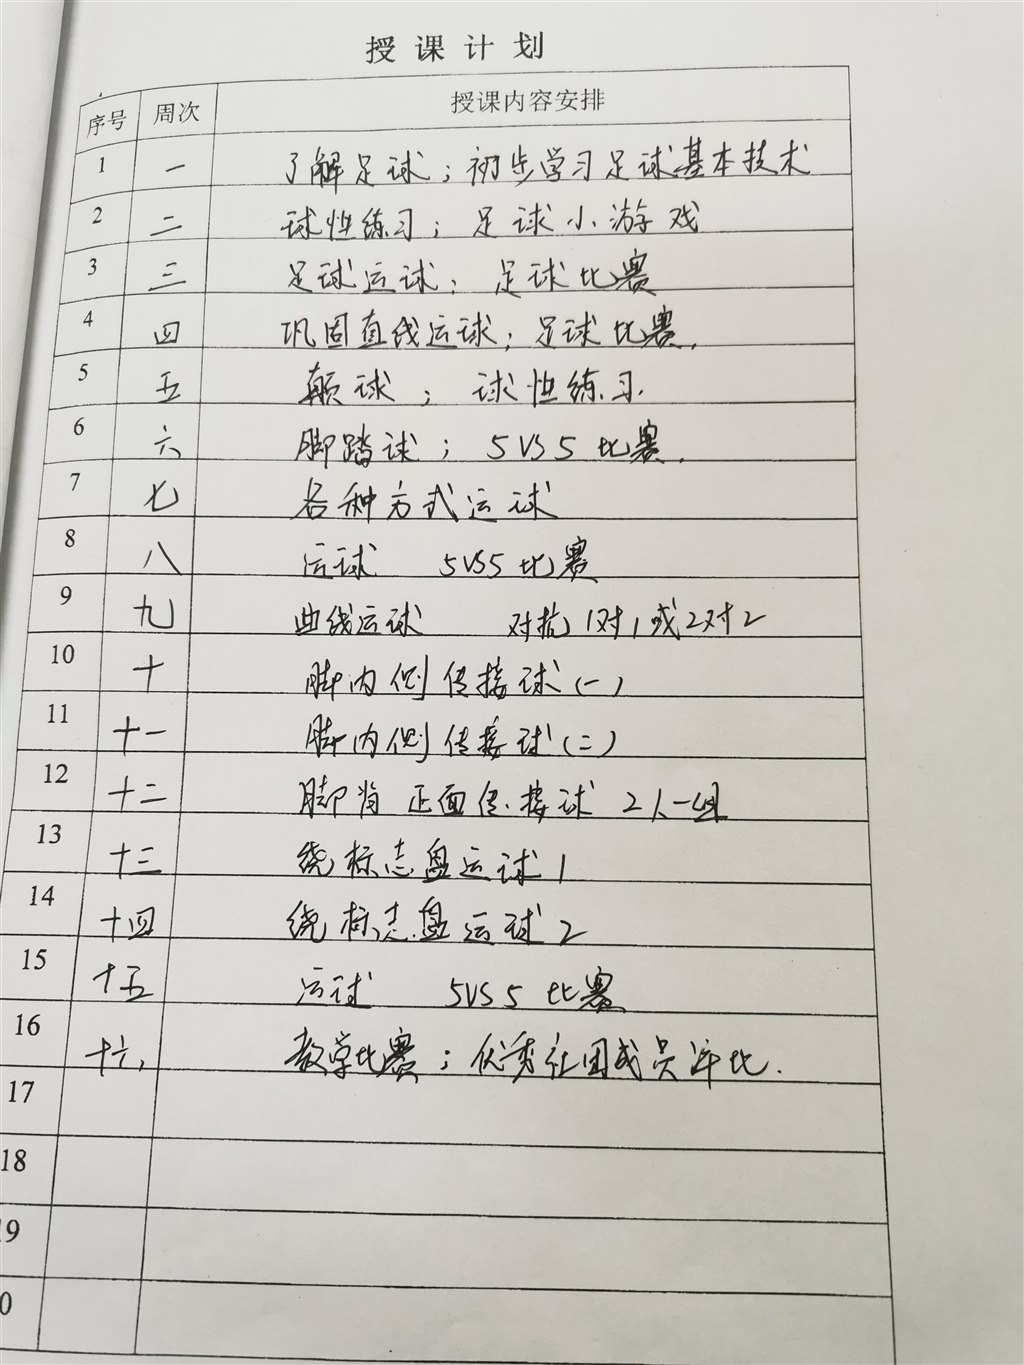 授课计划
序号 周次 授课内容安排
1 一 了解足球；初步学习足球基本技术
2 二 球性练习；足球小游戏
3 三 足球运球；足球比赛
4 四 巩固直线运球；足球比赛.
5 五 颠球；球性练习.
6 六 脚踏球；5VS5比赛.
7 七 各种方式运球
8 八 运球 5VS5比赛
9 九 曲线运球 对抗1对1或2对2
10 十 脚内侧传接球(一)
11 十一 脚内侧传接球(二)
12 十二 脚背正面传接球 2人一组
13 十三 绕标志盘运球1
14 十四 绕标志盘运球2
15 十五 运球 5VS5比赛
16 十六 教学比赛；优秀社团成员评比.
17
18
19
0